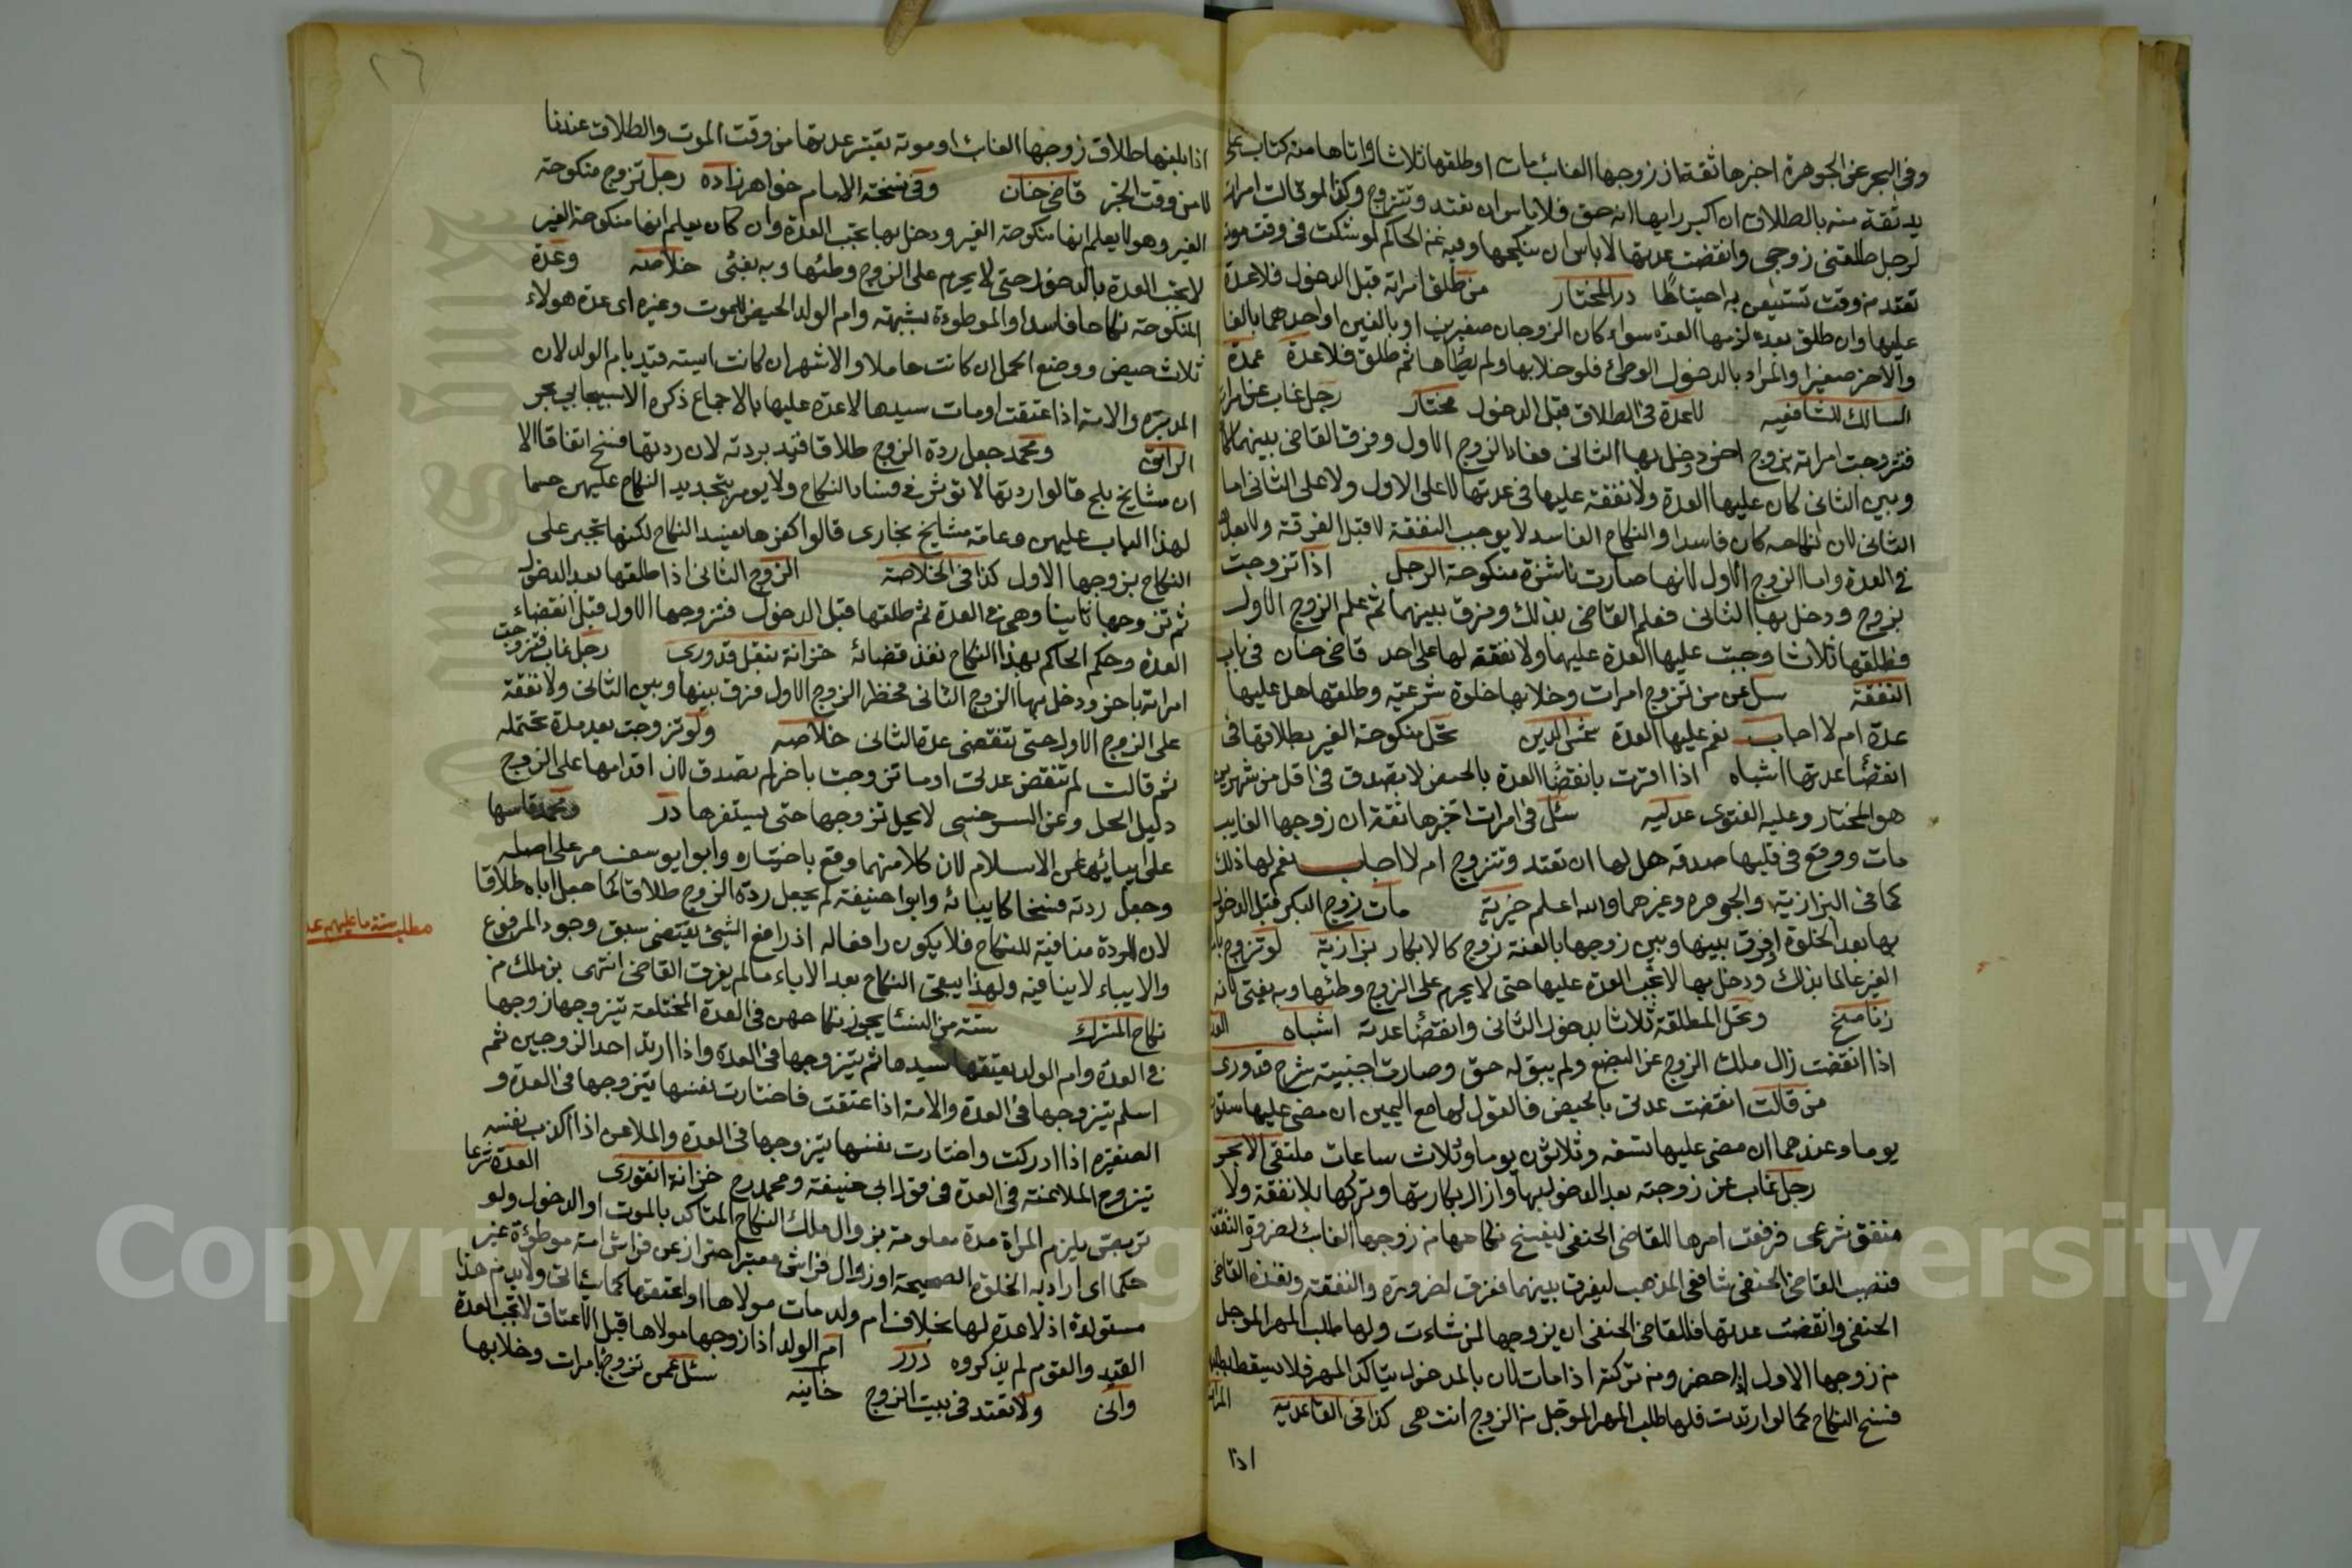 وفى البحر عن الجوهرة اخبرها ثقة ان زوجها الغائب مات او طلقها ثلاثا واتاها منه كتاب على
يد ثقة منه بالطلاق ان اكبر رايها انه حق فلا باس ان تعتد وتتزوج وكذا لو قالت امراة
لرجل طلقنى زوجى وانقضت عدتها لا باس ان ينكحها وفيه عن الحاكم لو شكت فى وقت موته
تعتد من وقت تستيقن به احتياطا در المختار من طلق امراته قبل الدخول فلا عدة
عليها وان طلق بعده لزمها العدة سواء كان الزوجان صغيرين او بالغين او احدهما بالغا
والآخر صغيرا والمراد بالدخول الوطئ فلو خلا بها ولم يطأها ثم طلق فلا عدة عمدة
السالك للشافعيه لا عدة فى الطلاق قبل الدخول مختار رجل غاب عن امراته
فتزوجت امراته بزوج اخر ودخل بها الثانى فعاد الزوج الاول وفرق القاضى بينهما
وبين الثانى كان عليها العدة ولا نفقة عليها فى عدتها لا على الاول ولا على الثانى اما
الثانى لان نكاحه كان فاسدا والنكاح الفاسد لا يوجب النفقة لا قبل الفرقة ولا بعد
فى العدة واما الزوج الاول لانها صارت ناشزة منكوحة الرجل اذا تزوجت
بزوج ودخل بها الثانى فعلم القاضى بذلك وفرق بينهما ثم علم الزوج الاول
فطلقها ثلاثا وجبت عليها العدة عليهما ولا نفقة لها على احد قاضى خان فى باب
النفقة سئل عن من تزوج امرات وخلا بها خلوة شرعية وطلقها هل عليها
عدة ام لا اجاب نعم عليها العدة شمس الدين تحل منكوحة الغير بطلاقها فى
انقضا عدتها اشباه اذا اقرت بانقضا العدة بالحيض لا يصدق فى اقل من شهرين
هو المختار وعليه الفتوى عدليه سئل فى امرات اخبرها ثقة ان زوجها الغايب
مات ووقع فى قلبها صدقه هل لها ان تعتد وتتزوج ام لا اجاب نعم لها ذلك
كما فى البزازية والجوهره وغيرهما والله اعلم خيرية مات زوج البكر قبل الدخول
بها بعد الخلوة او فرق بينها وبين زوجها بالعنة تزوج كالابكار بزازية لو تزوج
الغير عالما بذلك ودخل بها لا تجب العدة عليها حتى لا يحرم على الزوج وطئها وبه يفتى لانه
زنا منح وتحل المطلقة ثلاثا بدخول الثانى وانقضا عدته اشباه العدة
اذا انقضت زال ملك الزوج عن البضع ولم يبق له حق وصارت اجنبية شرح قدورى
من قالت انقضت عدتى بالحيض فالقول لها مع اليمين ان مضى عليها ستون
يوما وعندهما ان مضى عليها تسعه وثلاثون يوما وثلاث ساعات ملتقى الابحر
رجل غاب عن زوجته بعد الدخول بها وازال بكارتها وتركها بلا نفقة ولا
منفق شرعى فرفعت امرها للقاضى الحنفى ليفسخ نكاحها من زوجها الغائب لضرورة النفقة
فنصب القاضى الحنفى شافعى المذهب ليفرق بينهما ففرق لضرورة والنفقة ونفذه القاضى
الحنفى وانقضت عدتها فللقاضى الحنفى ان يزوجها لمن شاءت ولها طلب المهر الموجل
من زوجها الاول اذا حضر ومن تركته اذا مات لان بالدخول يتاكد المهر فلا يسقط
فسخ النكاح كما لو ارتدت فلها طلب المهر الموجل من الزوج انتهى كذا فى القاعديه
اذا
٢٦
اذا بلغها طلاق زوجها الغائب او موته يعتبر عدتها من وقت الموت والطلاق عندنا
لا من وقت الخبر قاضى خان وفى نسخة الامام خواهر زاده رجل تزوج منكوحة
الغير وهو لا يعلم انها منكوحة الغير ودخل بها تجب العدة وان كان يعلم انها منكوحة الغير
لا تجب العدة بالدخول حتى لا يحرم على الزوج وطئها وبه يفتى خلاصه وعدة
المنكوحة نكاحا فاسدا والموطوءة بشبهة وام الولد الحيض للموت وغيره اى عدة هولاء
ثلاث حيض ووضع الحمل ان كانت حاملا والاشهر ان كانت ايسة قيد بام الولد لان
المدبرة والامة اذا عتقت او مات سيدها لا عدة عليها بالاجماع ذكره الاسبيجابى بحر
الرائق ومحمد جعل ردة الزوج طلاقا قيد بردته لان ردتها فسخ اتفاقا الا
ان مشايخ بلخ قالوا ردتها لا توثر فى فساد النكاح ولا يومر بتجديد النكاح عليهن حسما
لهذا الباب عليهن وعامة مشايخ بخارى قالوا كفرها يفسد النكاح لكنها تجبر على
النكاح بزوجها الاول كذا فى الخلاصة الزوج الثانى اذا طلقها بعد الدخول
ثم تزوجها ثانيا وهى فى العدة ثم طلقها قبل الدخول فتزوجها الاول قبل انقضاء
العدة وحكم الحاكم بهذا النكاح نفذ قضائه خزانة بنقل قدورى رجل غاب فتزوجت
امراته باخر ودخل بها الزوج الثانى فحضر الزوج الاول فرق بينها وبين الثانى ولا نفقة
على الزوج الاول حتى تنقضى عدة الثانى خلاصه ولو تزوجت بعد مدة تحتمله
ثم قالت لم تنقض عدتى او ما تزوجت باخر لم تصدق لان اقدامها على الزوج
دليل الحل وعن السرخسى لا يحل تزوجها حتى يستفسرها درر ومحمد قاسها
على ابيائه عن الاسلام لان كلا منهما وقع باختياره وابو يوسف مر على اصله
وجعل ردته فسخا كابيائه وابوا حنيفة لم يجعل ردة الزوج طلاقا كما جعل اباه طلاقا
لان الردة منافية للنكاح فلا يكون رافعا له اذ رافع الشئ يقتضى سبق وجود المرفوع
والايباء لا ينافيه ولهذا يبقى النكاح بعد الاباء ما لم يفرق القاضى انتهى بن ملك من
نكاح المشرك ستة من النسا يجوز نكاحهن فى العدة المختلعة يتزوجها زوجها
فى العدة وام الولد يعتقها سيدها ثم يتزوجها فى العدة واذا ارتد احد الزوجين ثم
اسلم يتزوجها فى العدة والامة اذا عتقت فاختارت نفسها يتزوجها فى العدة و
الصغيرة اذا ادركت واختارت نفسها يتزوجها فى العدة والملاعن اذا اكذب نفسه
يتزوج الملاعنة فى العدة فى قول ابى حنيفة ومحمد رح خزانة الفقه العدة شرعا
تربص يلزم المراة مدة معلومة بزوال ملك النكاح المتاكد بالموت او الدخول ولو
حكما اى اراد به الخلوة الصحيحة او زوال فراش معتبر احتراز عن فراش امة موطوءة غير
مستولدة اذ لا عدة لها بخلاف ام ولد مات مولاها او اعتقها كما سياتى ولا بد من هذا
القيد والقوم لم يذكروه درر ام الولد اذا زوجها مولاها قبل الاعتاق لا تجب العدة
ولا تعتد فى بيت الزوج خانيه سئل عمن تزوج بامرات وخلا بها
مطلب ستة
Copyright © King Saud University